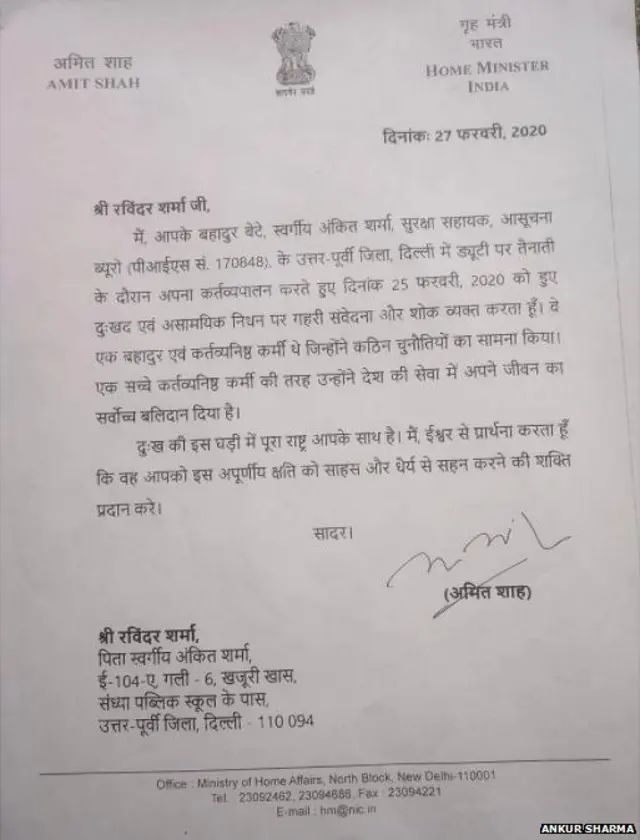 अमित शाह
AMIT SHAH
सत्यमेव जयते
गृह मंत्री
भारत
HOME MINISTER
INDIA
दिनांकः 27 फरवरी, 2020
श्री रविंदर शर्मा जी,
मैं, आपके बहादुर बेटे, स्वर्गीय अंकित शर्मा, सुरक्षा सहायक, आसूचना
ब्यूरो (पीआईएस सं. 170848), के उत्तर-पूर्वी जिला, दिल्ली में ड्यूटी पर तैनाती
के दौरान अपना कर्तव्यपालन करते हुए दिनांक 25 फरवरी, 2020 को हुए
दुःखद एवं असामयिक निधन पर गहरी संवेदना और शोक व्यक्त करता हूँ। वे
एक बहादुर एवं कर्तव्यनिष्ठ कर्मी थे जिन्होंने कठिन चुनौतियों का सामना किया।
एक सच्चे कर्तव्यनिष्ठ कर्मी की तरह उन्होंने देश की सेवा में अपने जीवन का
सर्वोच्च बलिदान दिया है।
दुःख की इस घड़ी में पूरा राष्ट्र आपके साथ है। मैं, ईश्वर से प्रार्थना करता हूँ
कि वह आपको इस अपूर्णीय क्षति को साहस और धैर्य से सहन करने की शक्ति
प्रदान करे।
सादर।
(अमित शाह)
श्री रविंदर शर्मा,
पिता स्वर्गीय अंकित शर्मा,
ई-104-ए, गली - 6, खजूरी खास,
संध्या पब्लिक स्कूल के पास,
उत्तर-पूर्वी जिला, दिल्ली - 110 094
Office : Ministry of Home Affairs, North Block, New Delhi-110001
Tel. : 23092462, 23094686, Fax : 23094221
E-mail : hm@nic.in
ANKUR SHARMA